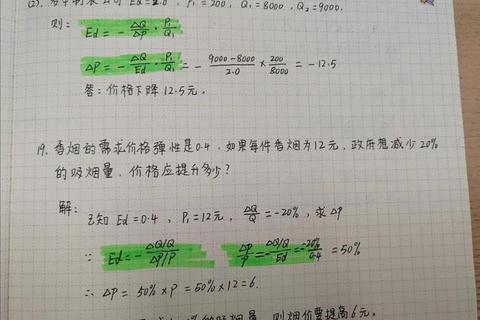 (2). Ed=2.0, P₁=200, Q₁=8000, Q₂=9000.
则: Ed = - ΔQ/ΔP · P₁/Q₁
ΔP = - ΔQ/Ed · P₁/Q₁ = - (9000-8000)/2.0 × 200/8000 = -12.5
答: 价格下降12.5元.
19. 香烟的需求价格弹性是0.4, 如果每件香烟为12元, 政府想减少20%
的吸烟量, 价格应提升多少?
解: 已知 Ed=0.4, P₁=12元, ΔQ/Q=-20%, 求ΔP
∵ Ed = - (ΔQ/Q)/(ΔP/P) ΔP/P = - (ΔQ/Q)/Ed = - -20%/0.4 = 50%
∴ ΔP = 50% × P = 50% × 12 = 6.
的吸烟量, 则烟价要提高6元.